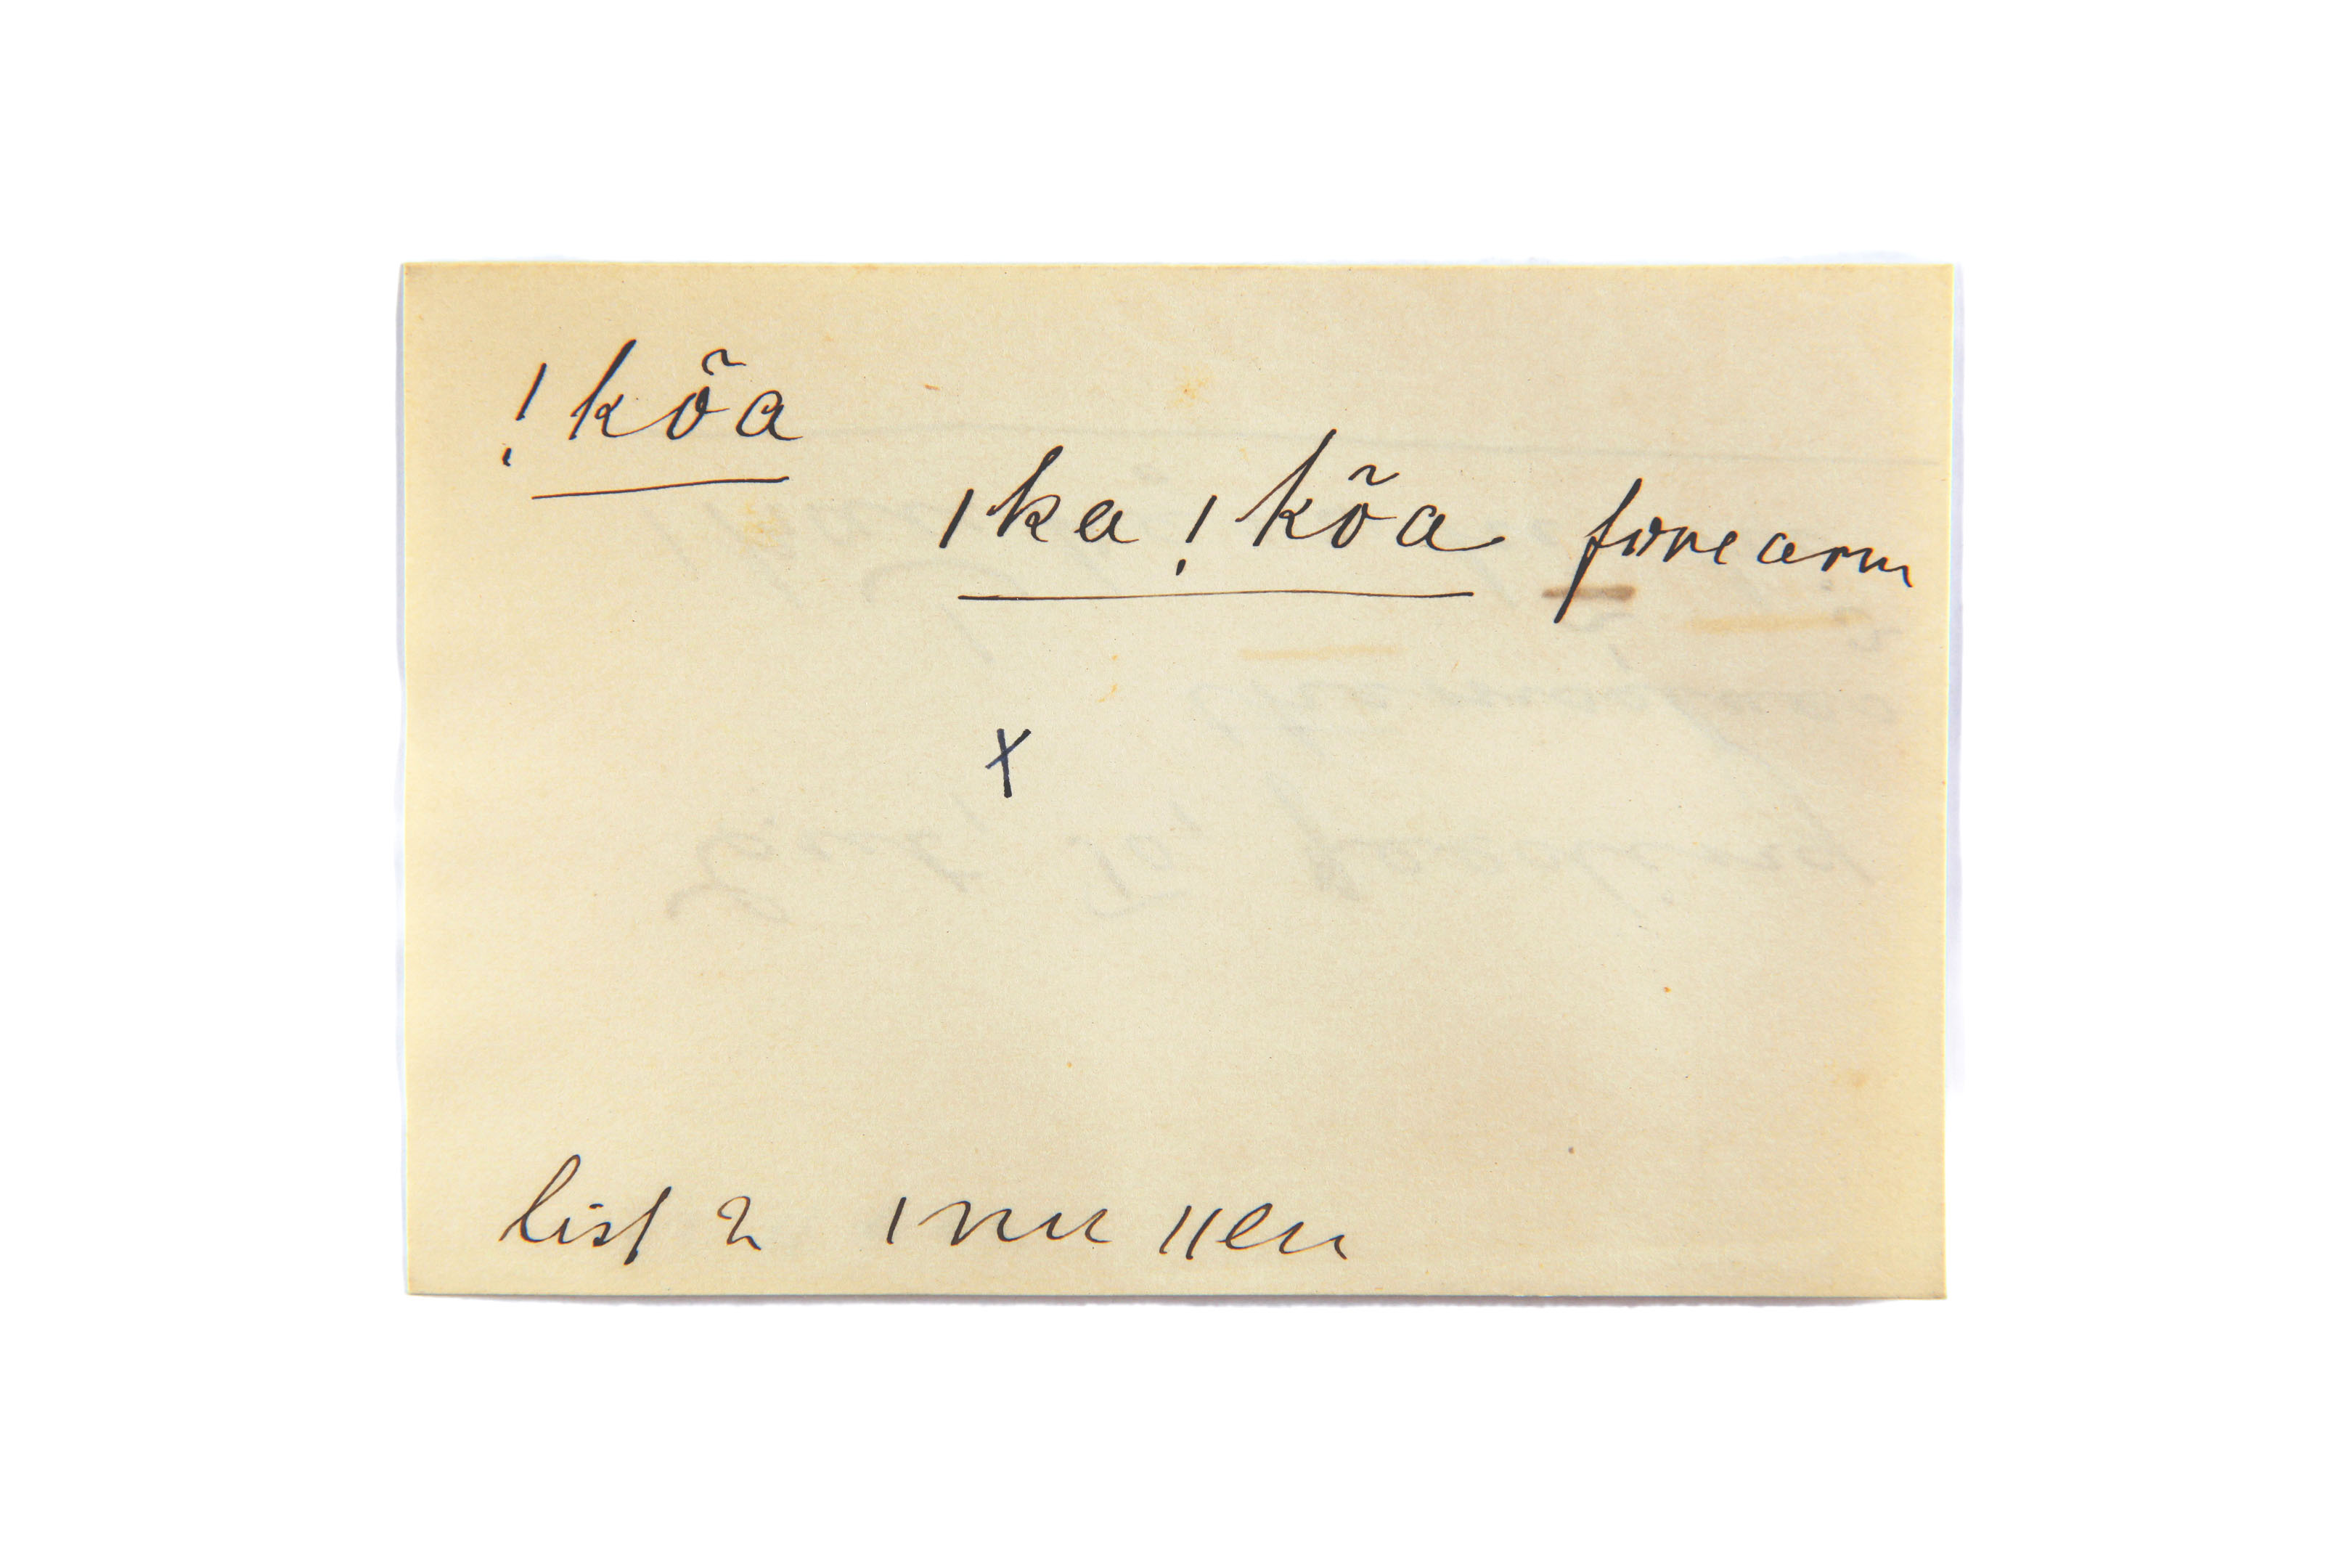 !kõa
ǀka !kõa forearm
x
list 2 ǀnu ǁen